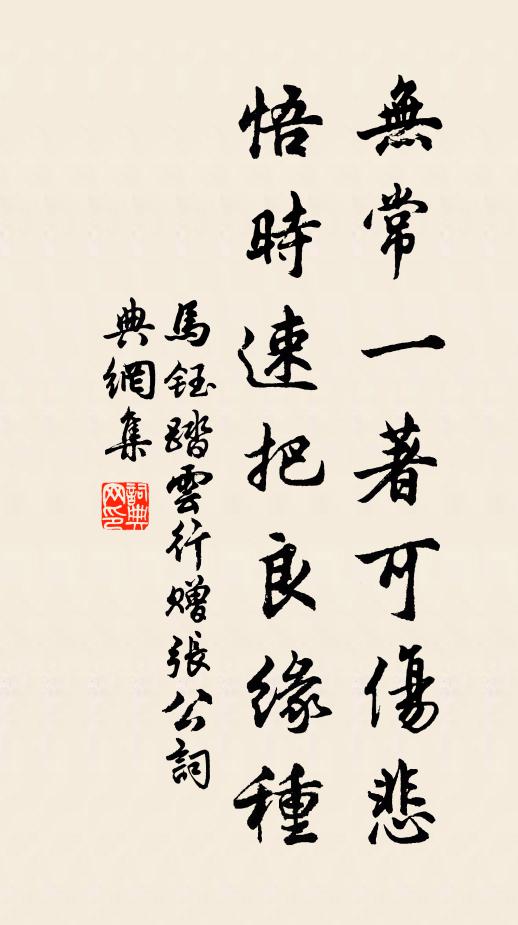 無常一著可傷悲
悟時速把良緣種
馬鈺踏雲行贈張公詞
典網集
詞典網印